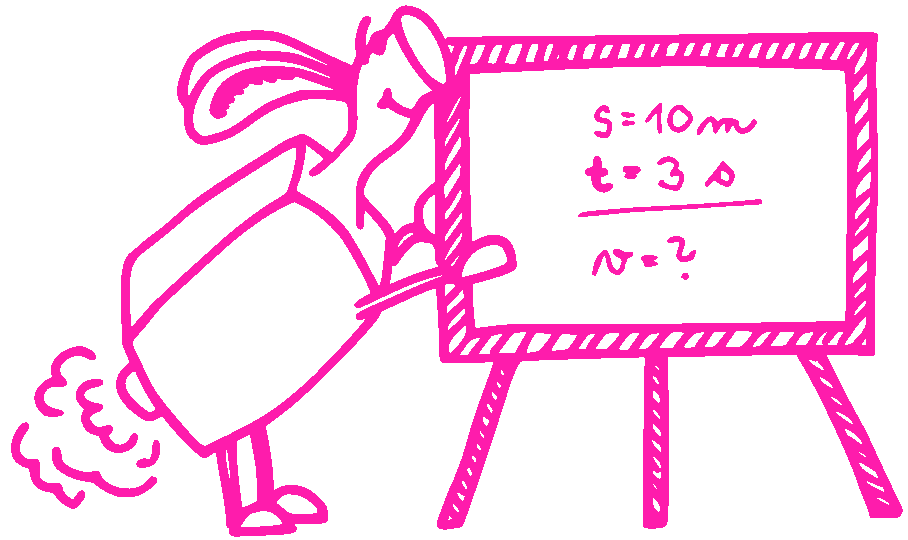 s=10m
t=3s
v=?